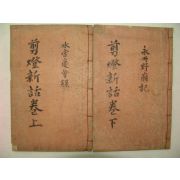 剪燈新話卷下
永州野廟記
剪燈新話卷上
水宮慶會錄